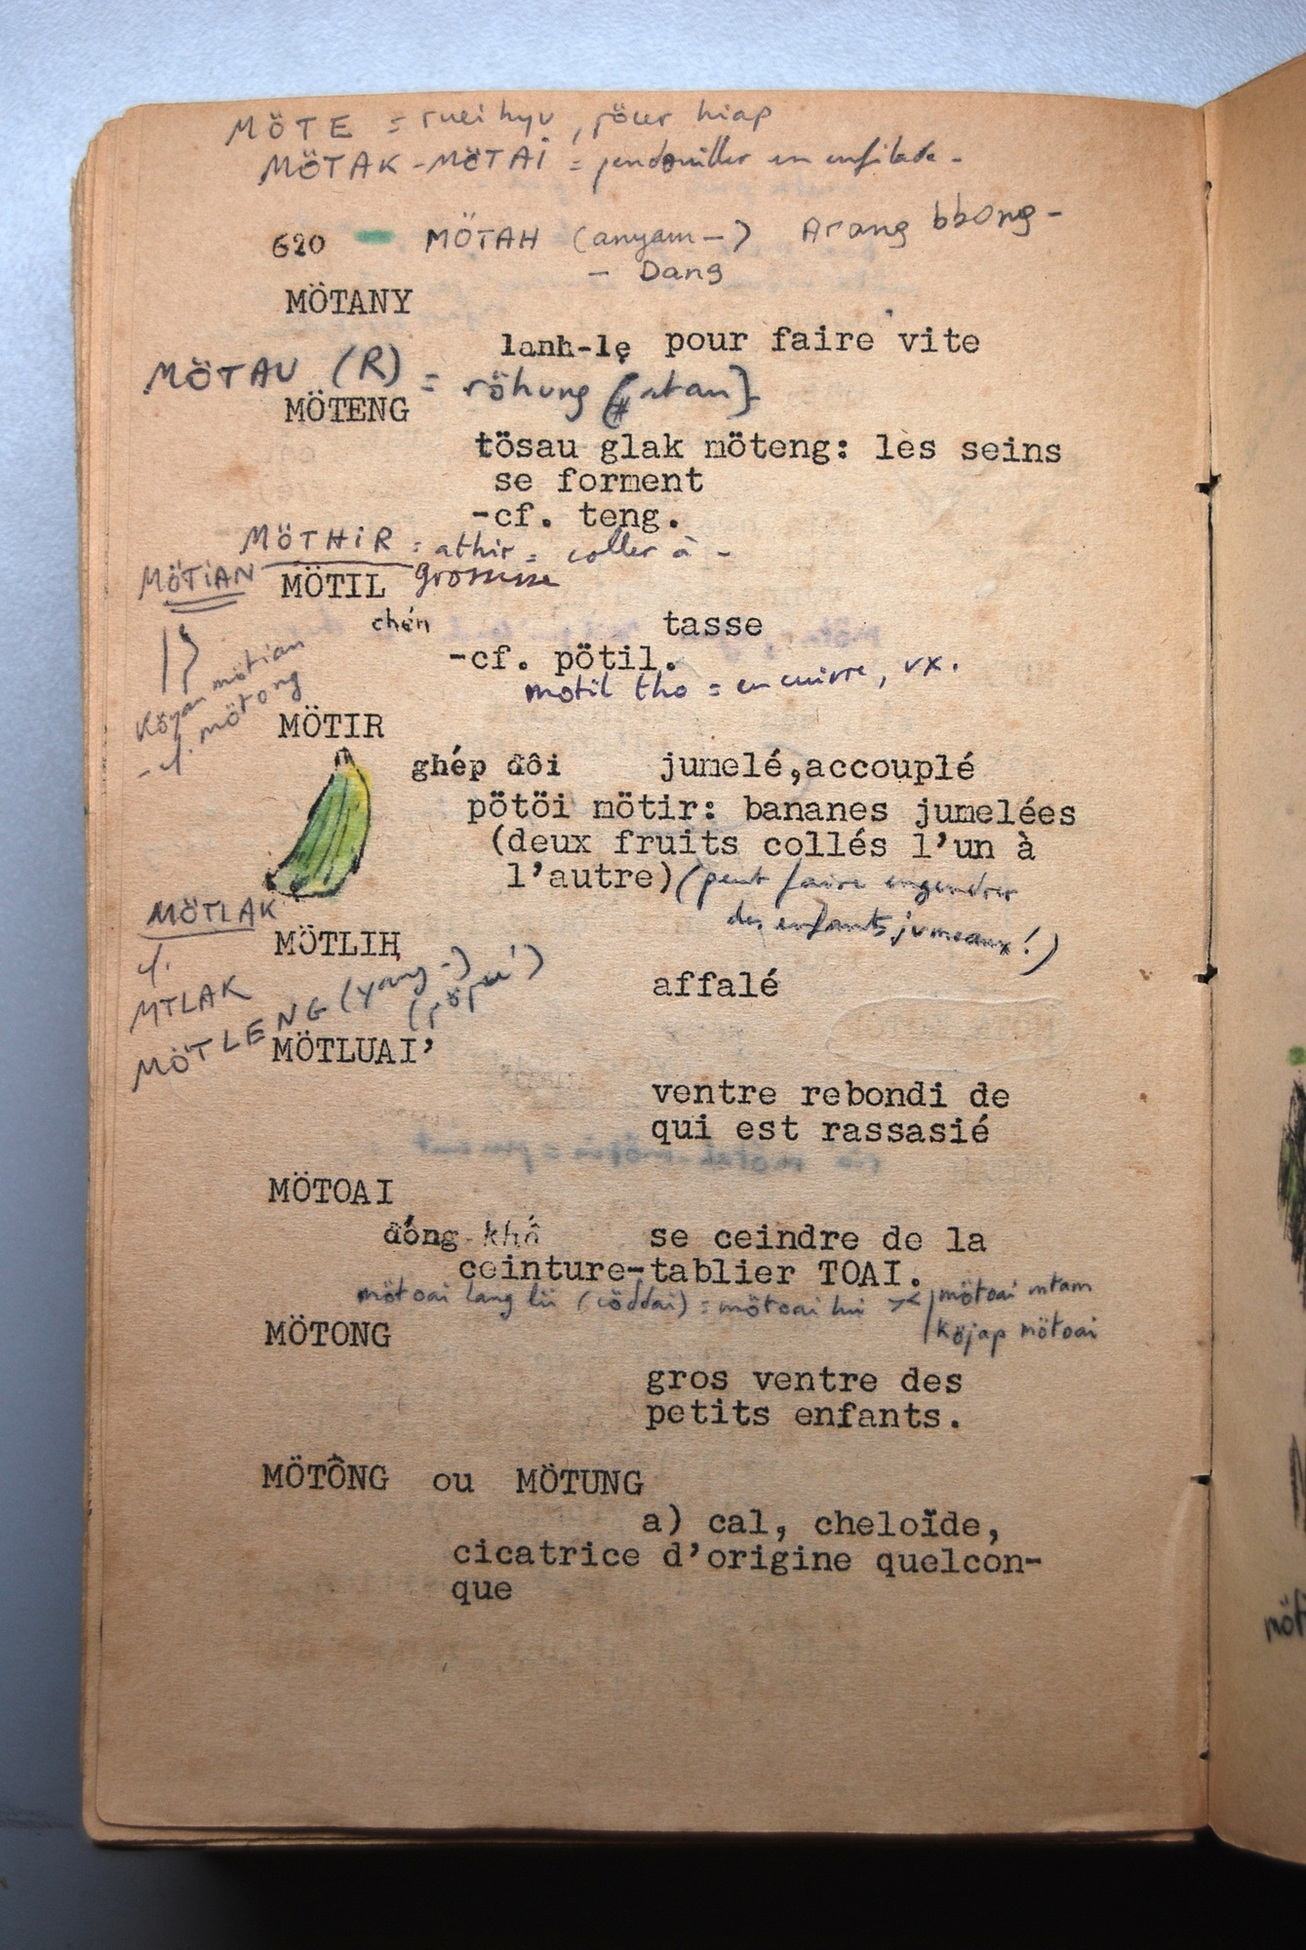 MÖTE = ruei hyu, pöuer hiap
MÖTAK-MÖTAI = pendouiller en enfilade -
620 - MÖTAH (anyam -) Arang bbong -
- Dang
MÖTANY
lanh-lẹ pour faire vite
MÖTAU (R) = röhung
MÖTENG
tösau glak möteng: les seins
se forment
-cf. teng.
MÖTHIR = athir = coller à -
MÖTIAN grossesse
MÖTIL
chén tasse
-cf. pötil.
motil tho = en cuivre, vx.
Köyan mötian
- cf. mötong
MÖTIR
ghép đôi jumelé,accouplé
pötöi mötir: bananes jumelées
(deux fruits collés l'un à
l'autre) (peut faire engendrer
des enfants jumeaux!)
MÖTLAK
cf.
MTLAK
MÖTLIH
affalé
MÖTLENG (yang -)
MÖTLUAI'
ventre rebondi de
qui est rassasié
MÖTOAI
đóng khố se ceindre de la
ceinture-tablier TOAI.
mötoai lang lii (cöddai) = mötoai hui >< mötoai mtam
köjap mötoai
MÖTONG
gros ventre des
petits enfants.
MÖTÔNG ou MÖTUNG
a) cal, cheloïde,
cicatrice d'origine quelcon-
que